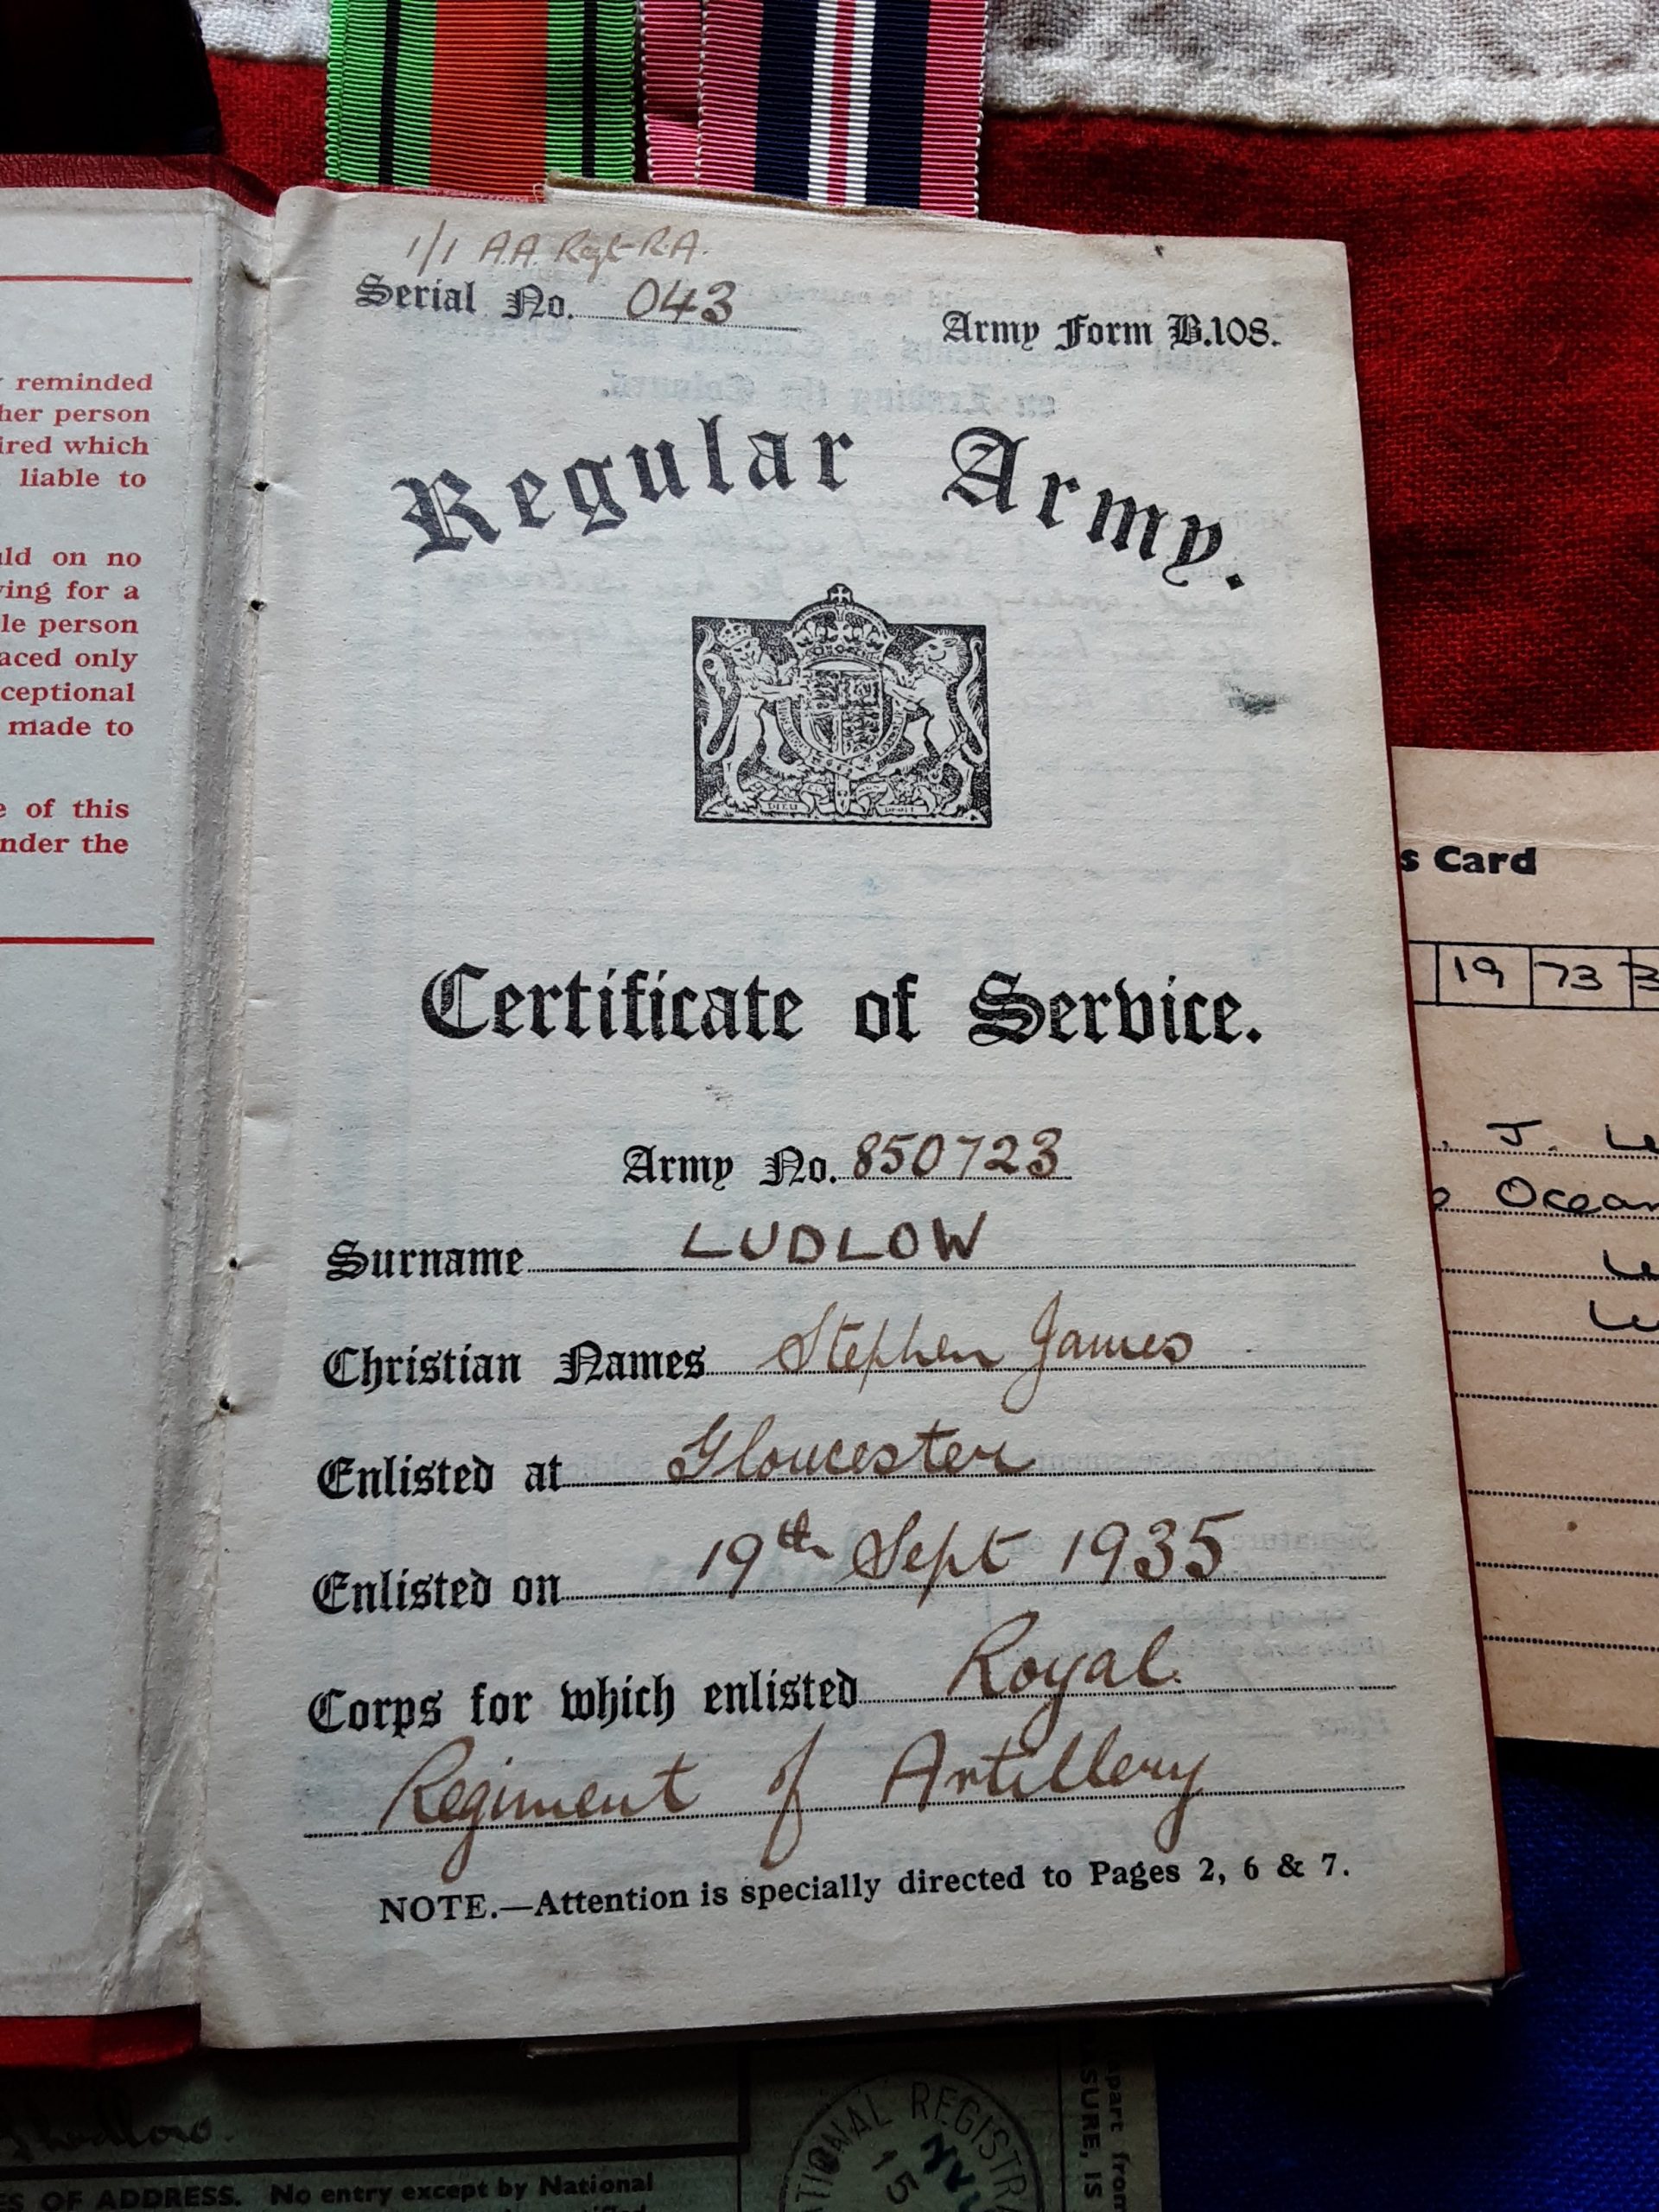 1/1 A.A. Regt R.A.
Serial No. 043
Army Form B.108.
Regular Army.
DIEU DROIT
Certificate of Service.
Army No. 850723
Surname LUDLOW
Christian Names Stephen James
Enlisted at Gloucester
Enlisted on 19th Sept 1935
Corps for which enlisted Royal
Regiment of Artillery
NOTE.—Attention is specially directed to Pages 2, 6 & 7.
reminded
her person
ired which
liable to
on no
ving for a
le person
aced only
ceptional
made to
of this
nder the
s Card
19 73
J.
Ocean
OF ADDRESS. No entry except by National
NATIONAL REGISTRA
15
apart from
SURE, IS